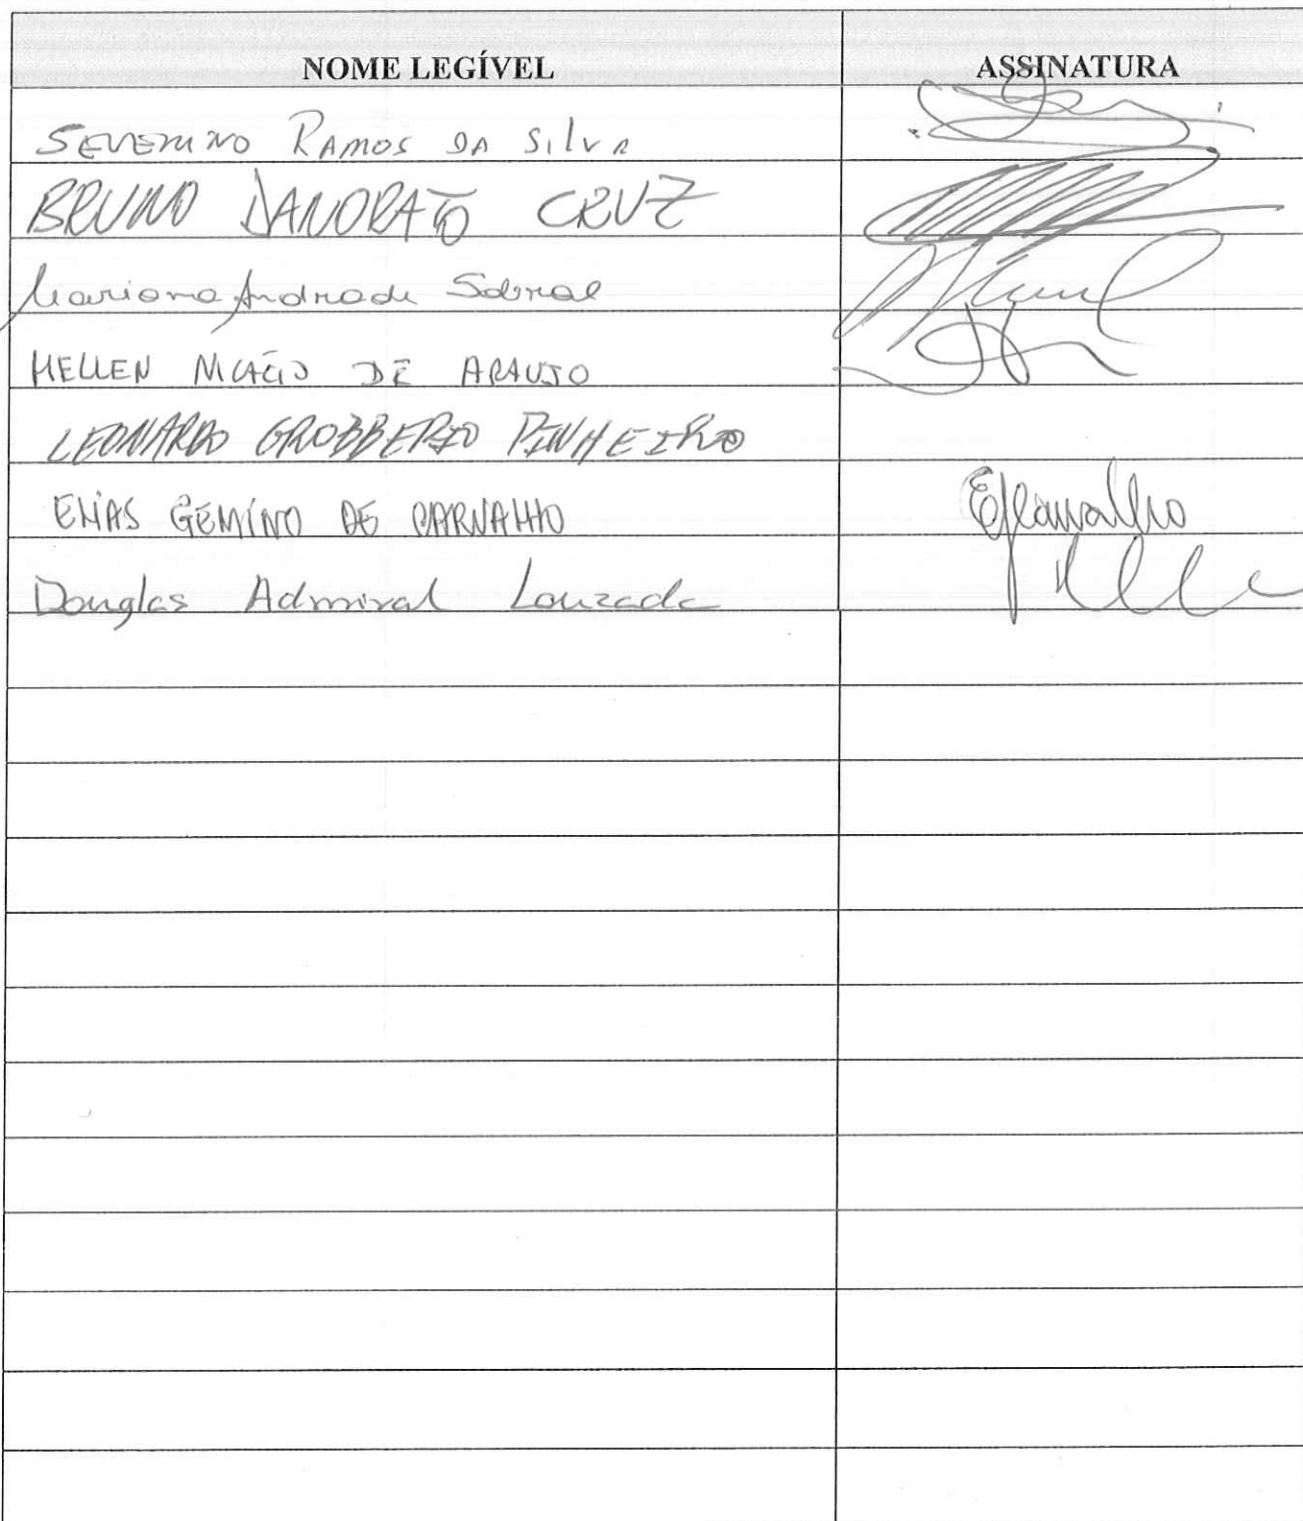 NOME LEGÍVEL ASSINATURA
SEVERINO RAMOS DA SILVA
BRUNO DANORATO CRUZ
Mariana Andrade Sobral
HELLEN NICÁCIO DE ARAUJO
LEONARDO GROBBERIO PINHEIRO
ELIAS GEMINO DE CARVALHO EGCarvalho
Douglas Admiral Louzada